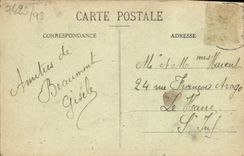 7623/93
CARTE POSTALE
CORRESPONDANCE
ADRESSE
Amitiés de
Beaumont
Gisèle
Mr et Mmes
24 rue François Arago
Le Havre